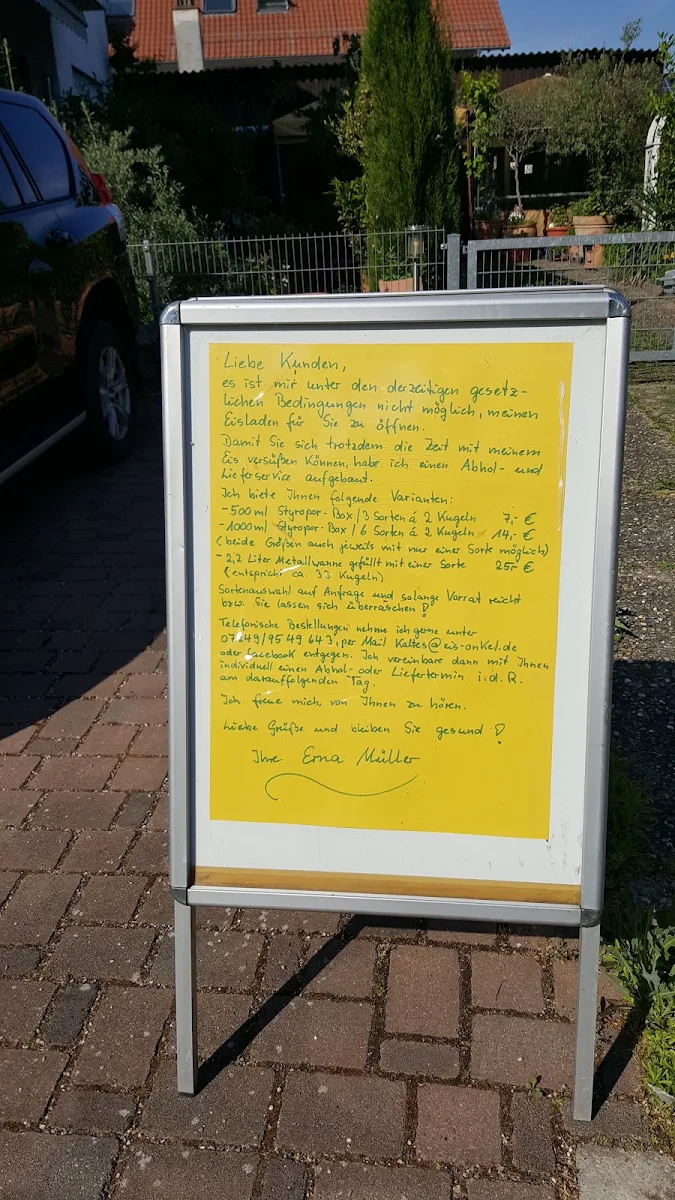 Liebe Kunden,
es ist mir unter den derzeitigen gesetz-
lichen Bedingungen nicht möglich, meinen
Eisladen für Sie zu öffnen.
Damit Sie sich trotzdem die Zeit mit meinem
Eis versüßen können, habe ich einen Abhol- und
Lieferservice aufgebaut.
Ich biete Ihnen folgende Varianten:
- 500ml Styropor-Box / 3 Sorten á 2 Kugeln 7,- €
- 1000ml Styropor-Box / 6 Sorten á 2 Kugeln 14,- €
(beide Größen auch jeweils mit nur einer Sorte möglich)
- 2,2 Liter Metallwanne gefüllt mit einer Sorte 25,- €
(entspricht ca. 33 Kugeln)
Sortenauswahl auf Anfrage und solange Vorrat reicht
bzw. Sie lassen sich überraschen!
Telefonische Bestellungen nehme ich gerne unter
07249/95 49 64 3, per Mail Kaltes@eis-onkel.de
oder facebook entgegen. Ich vereinbare dann mit Ihnen
individuell einen Abhol- oder Liefertermin i.d.R.
am darauffolgenden Tag.
Ich freue mich, von Ihnen zu hören.
Liebe Grüße und bleiben Sie gesund!
Ihre Erna Müller